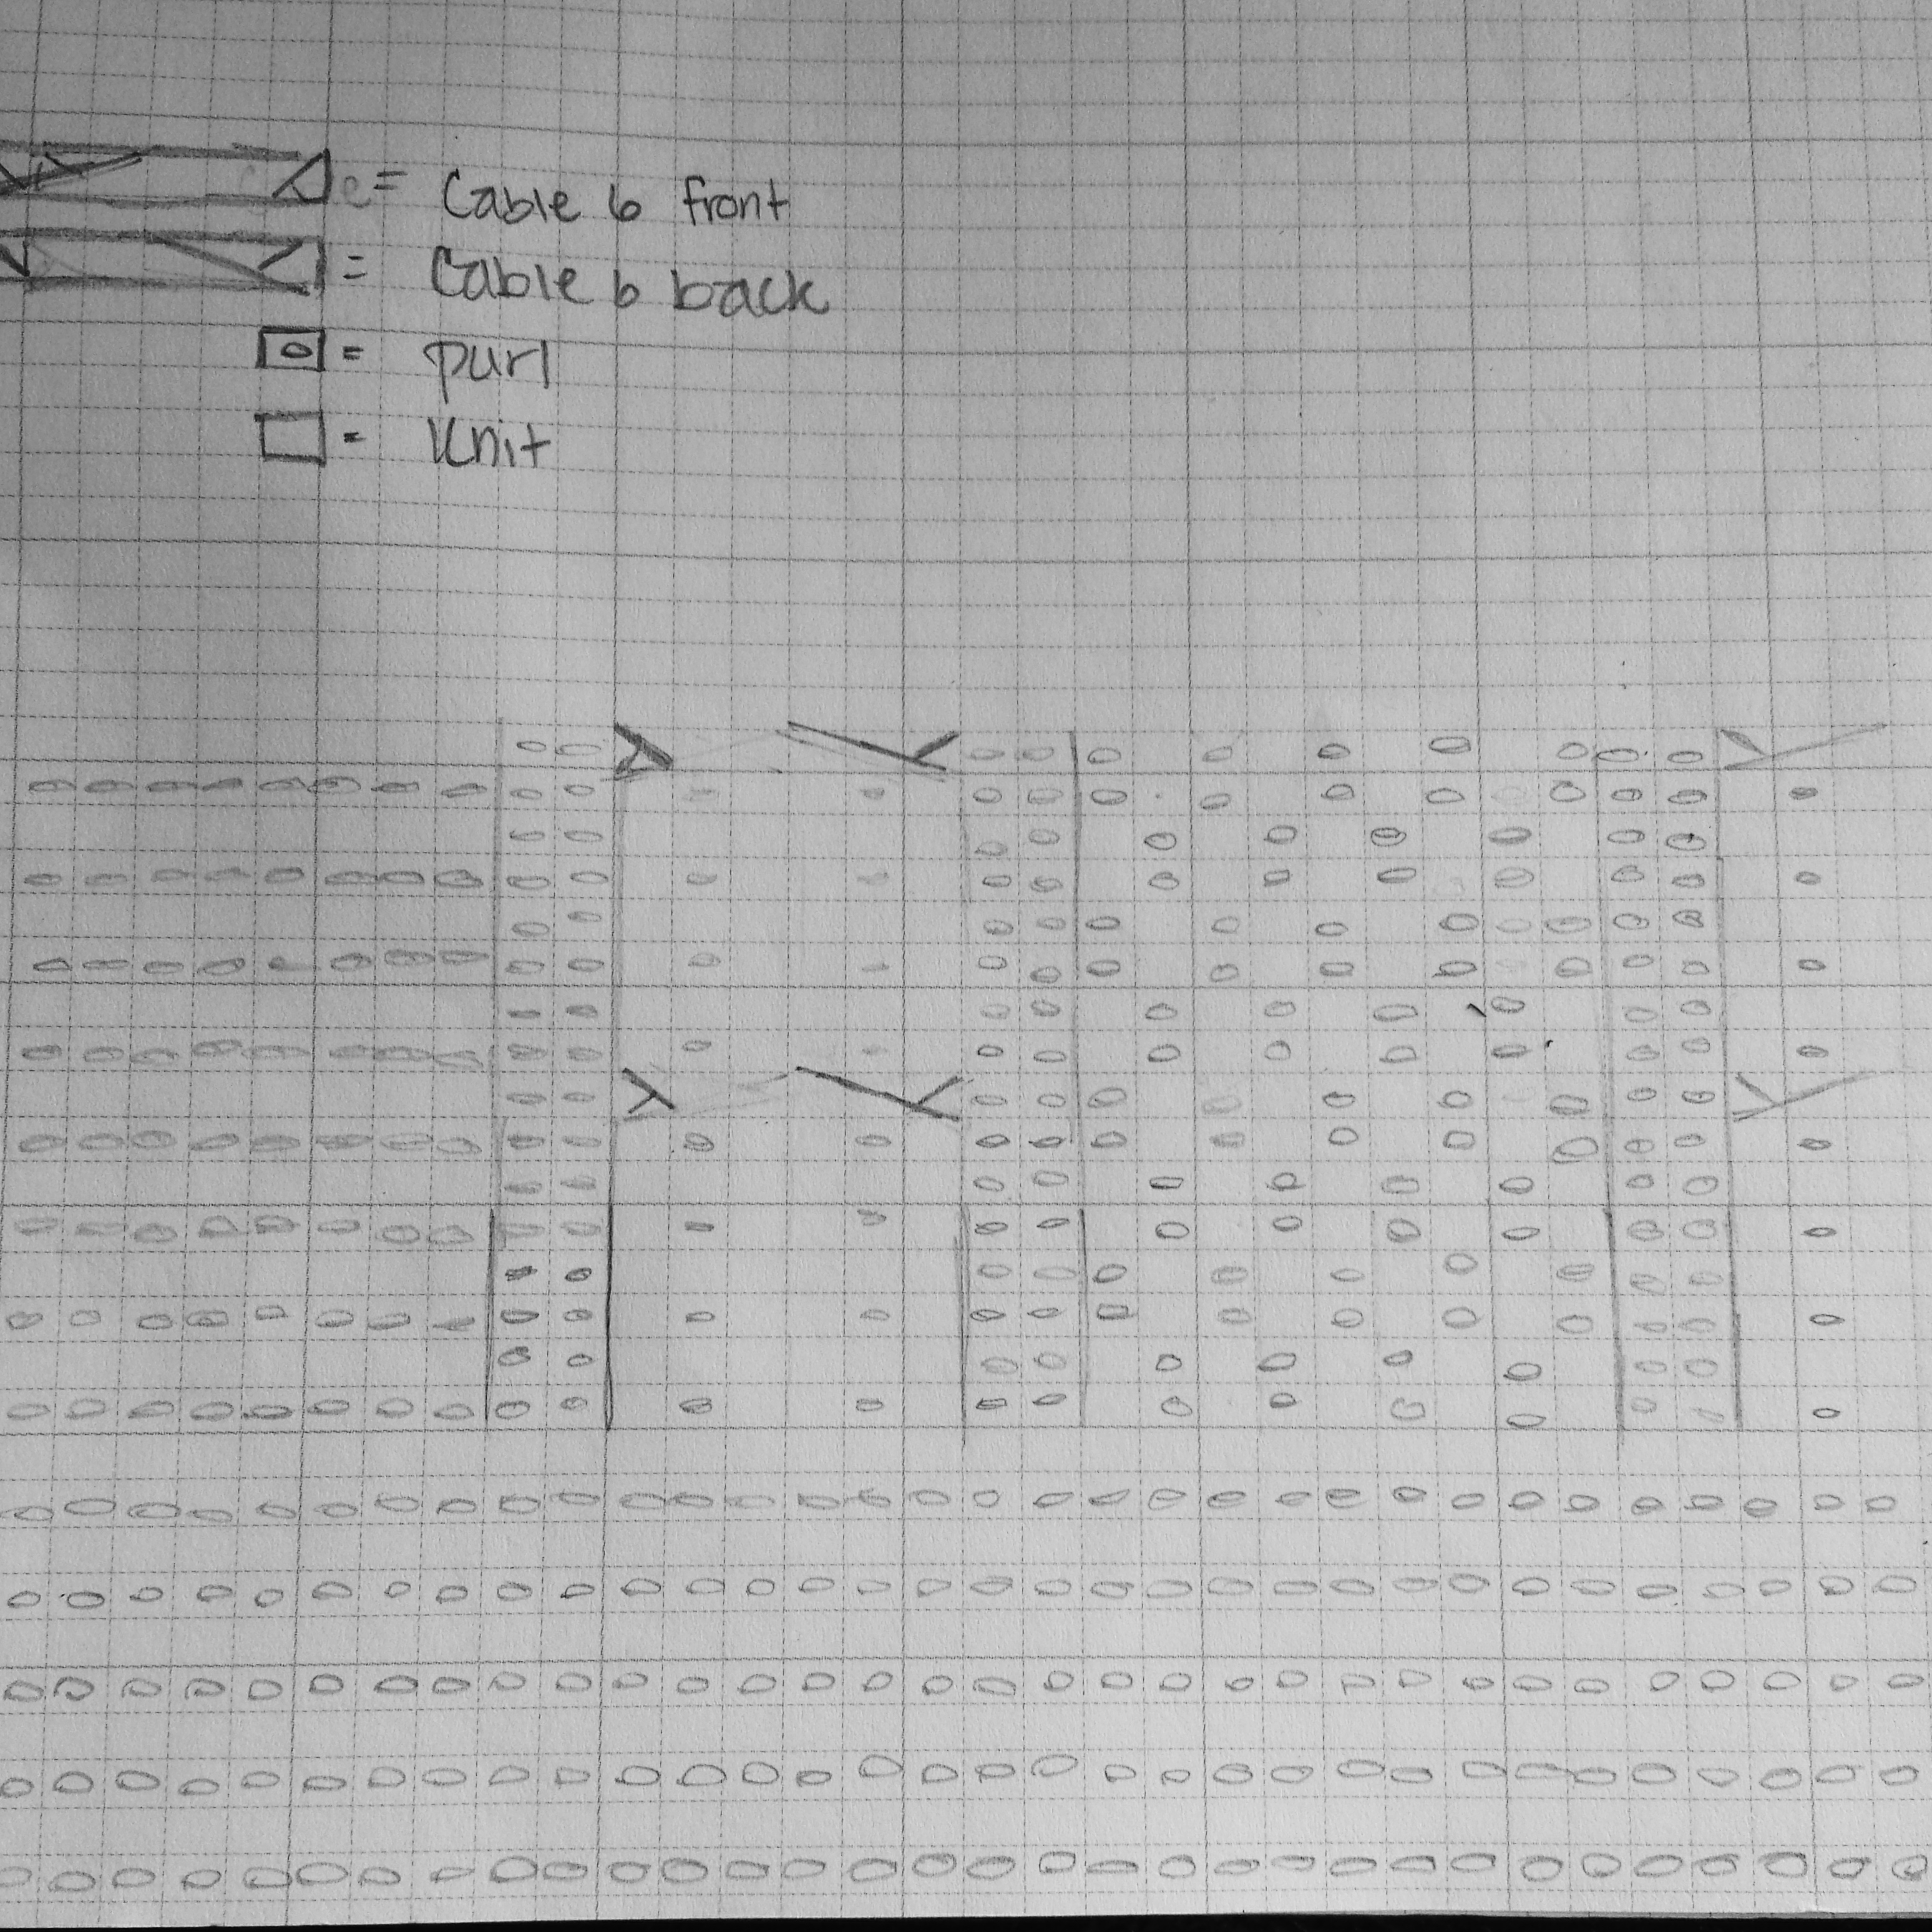 = Cable 6 front
= Cable 6 back
= purl
= Knit